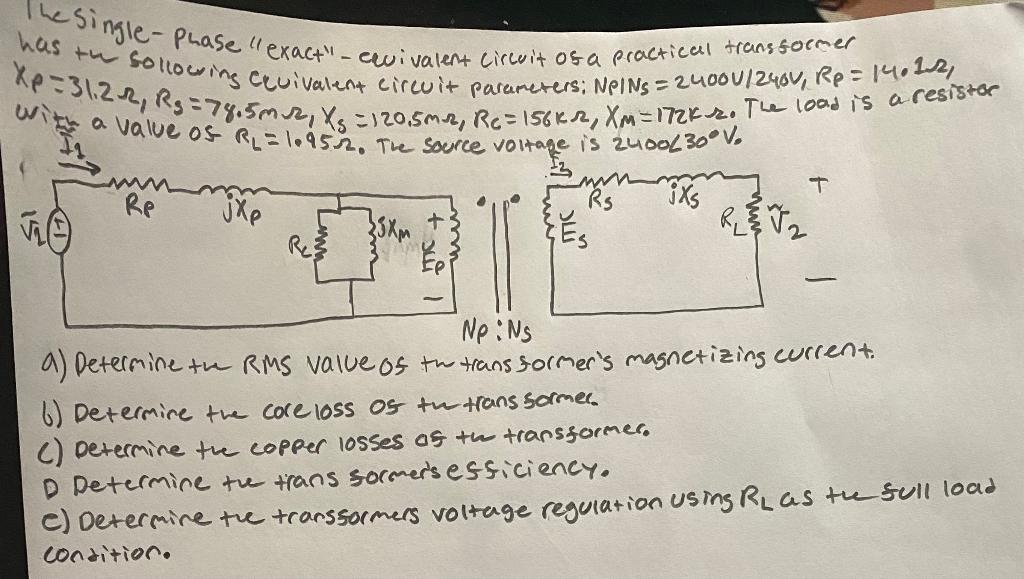 The single-phase "exact"-equivalent circuit of a practical transformer
has the following equivalent circuit parameters; Np/Ns = 2400V/240V, Rp = 14.1Ω,
Xp = 31.2Ω, Rs = 78.5mΩ, Xs = 120.5mΩ, Rc = 156KΩ, Xm = 172KΩ. The load is a resistor
with a value of RL = 1.95Ω. The source voltage is 2400∠30° V.
Ĩ1
Rp
jXp
Ṽ1
Rc
jXm
+
Ẽp
−
Np : Ns
Ĩ2
Rs
jXs
Ẽs
RL
+
Ṽ2
−
a) Determine the RMS value of the transformer's magnetizing current.
b) Determine the core loss of the transformer.
c) Determine the copper losses of the transformer.
D Determine the transformer's efficiency.
e) Determine the transformers voltage regulation using RL as the full load
condition.